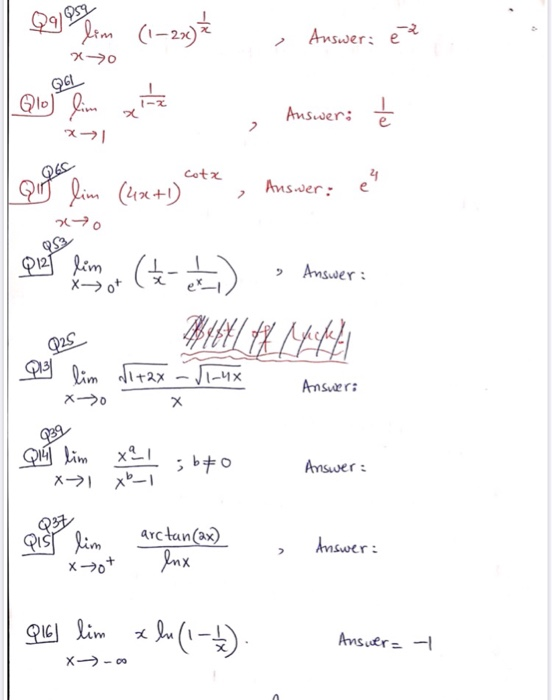 Q9] Q59 lim x→0 (1-2x)^(1/x) , Answer: e^-2
Q10] Q61 lim x→1 x^(1/(1-x)) , Answer: 1/e
Q11] Q65 lim x→0 (4x+1)^cotx , Answer: e^4
Q12] Q53 lim x→0+ (1/x - 1/(e^x-1)) , Answer:
Q13] Q25 lim x→0 (√(1+2x) - √(1-4x))/x Answer:
Q14] Q39 lim x→1 (x^a-1)/(x^b-1) ; b≠0 Answer:
Q15] Q37 lim x→0+ arctan(2x)/lnx , Answer:
Q16] lim x→-∞ x ln(1-1/x). Answer= -1